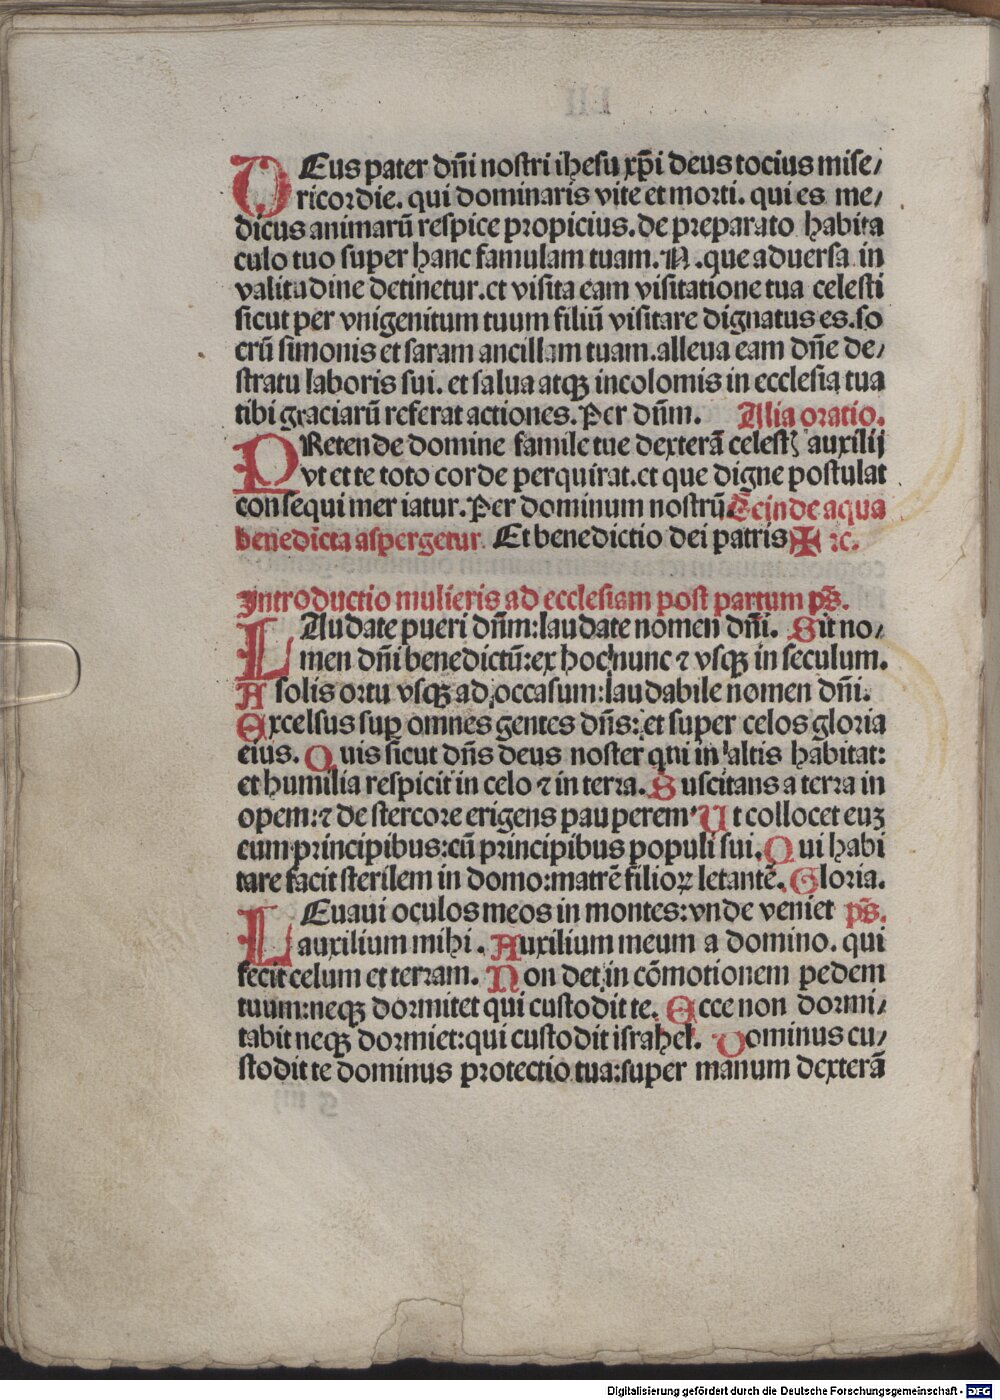 DEus pater dn̄i nostri ihesu xp̄i deus tocius mise/
ricordie. qui dominaris vite et morti. qui es me/
dicus animarū respice propicius. de preparato habita
culo tuo super hanc famulam tuam. N. que aduersa in
valitudine detinetur. et visita eam visitatione tua celesti
sicut per vnigenitum tuum filiū visitare dignatus es. so
crū simonis et saram ancillam tuam. alleua eam dn̄e de/
stratu laboris sui. et salua atqꝫ incolomis in ecclesia tua
tibi graciarū referat actiones. Per dn̄m. Alia oratio.
PRetende domine famile tue dexterā celestꝭ auxilij
vt et te toto corde perquirat. et que digne postulat
consequi meriatur. Per dominum nostrū. Deinde aqua
benedicta aspergetur. Et benedictio dei patris ✠ ⁊c.
Introductio mulieris ad ecclesiam post partum ps̄.
LAudate pueri dn̄m: laudate nomen dn̄i. Sit no/
men dn̄i benedictū: ex hoc nunc ⁊ vsqꝫ in seculum.
A solis ortu vsqꝫ ad occasum: laudabile nomen dn̄i.
Excelsus suꝑ omnes gentes dn̄s: et super celos gloria
eius. Quis sicut dn̄s deus noster qui in altis habitat:
et humilia respicit in celo ⁊ in terra. Suscitans a terra in
opem: ⁊ de stercore erigens pauperem. Ut collocet euꝫ
cum principibus: cū principibus populi sui. Qui habi
tare facit sterilem in domo: matrē filioꝝ letantē. Gloria.
LEuaui oculos meos in montes: vnde veniet ps̄.
auxilium mihi. Auxilium meum a domino. qui
fecit celum et terram. Non det in cōmotionem pedem
tuum: neqꝫ dormitet qui custodit te. Ecce non dormi/
tabit neqꝫ dormiet: qui custodit israhel. Dominus cu/
stodit te dominus protectio tua: super manum dexterā
Digitalisierung gefördert durch die Deutsche Forschungsgemeinschaft - DFG